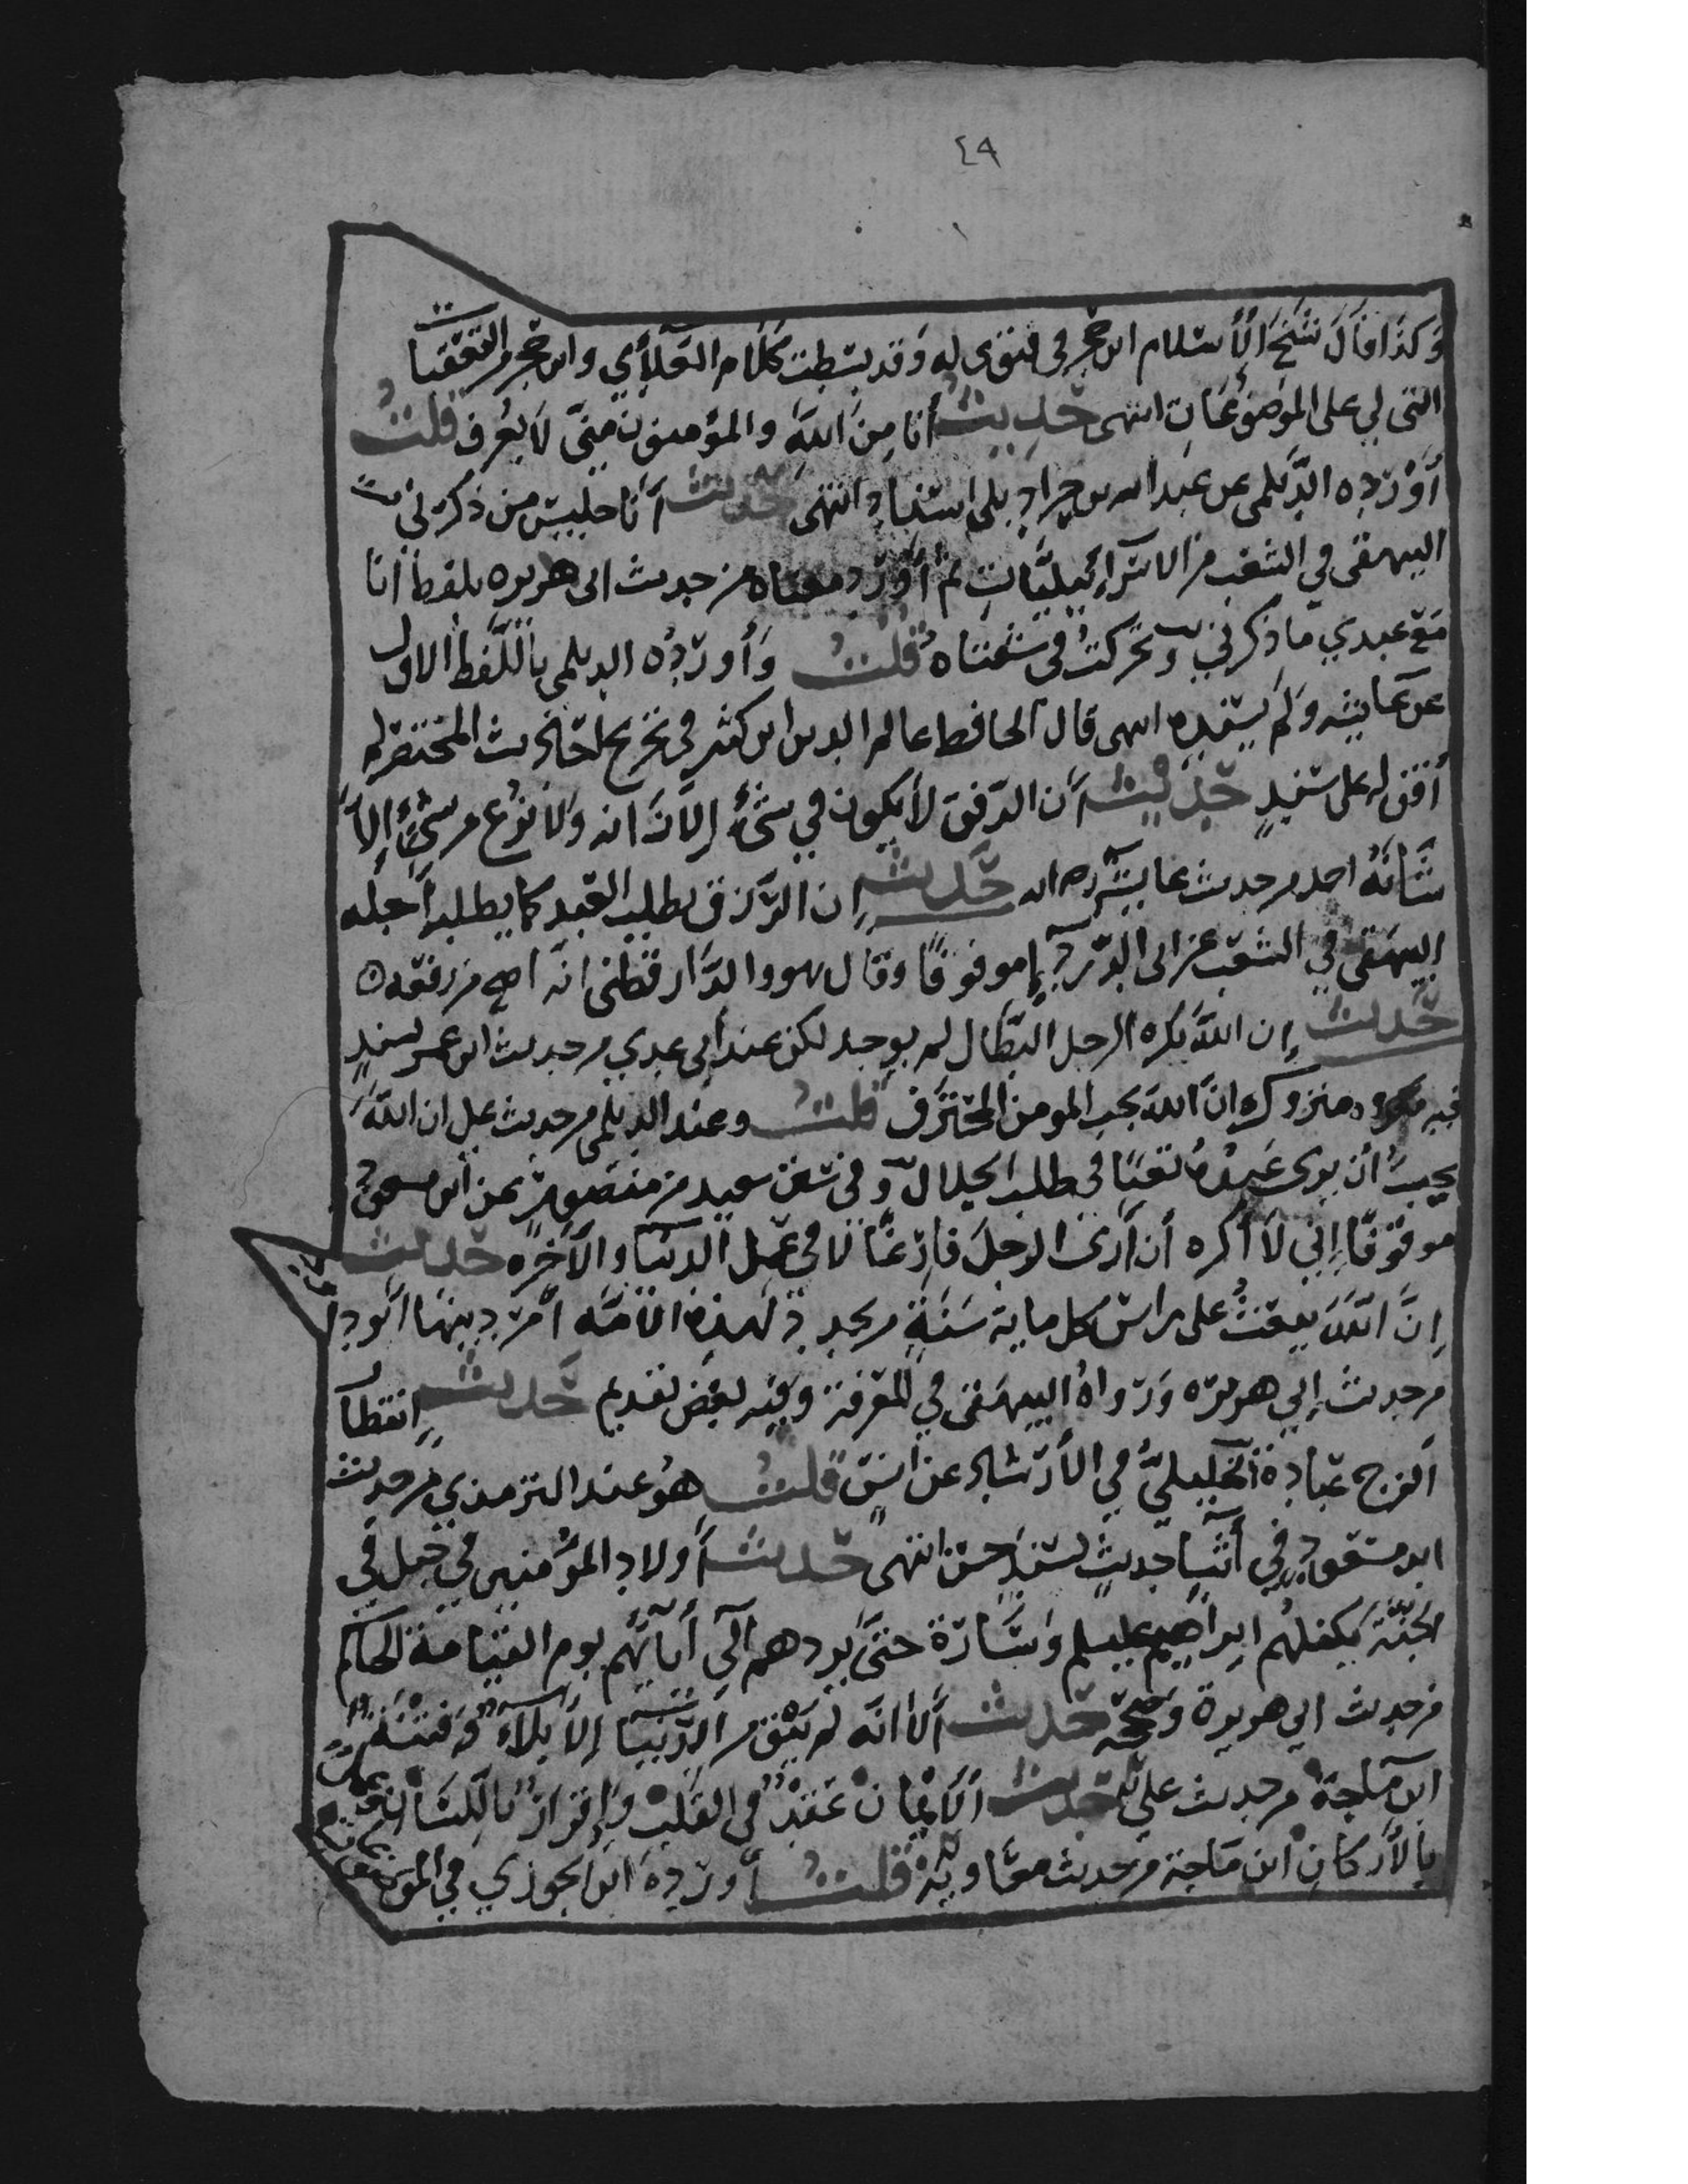 ٤٩
وَكَذَا قَالَ شَيْخُ الْأِسْلَام ابن حجر في فتوى له وَقد بسَطت كَلَام العَلَأي وابن حجر في التعقبات
التي لي على الموضوعات انتهى حَدِيث أنا مِنَ اللّهَ والمؤمنون مِنِّي لَا يعُرف قلتُ
أَوْرَدَه الدَّيلمى عن عَبد الله بن جِرَادٍ بلى اسْنادٍ انتهى حَديث أَنَا جليسُ من ذكَرني
البيهقى في الشعب من الاسْرائيليَّاتِ ثم أَورَد معناه من حديث ابى هريره بلفظ أنا
مَعَ عبدي مَا ذكرني وتحركتْ في شفتاه قلتُ وَأورَدُه الديلمي باللَّفظ الاول
عن عَايشه وَلَم يسْنده انتهى قال الحافظ عالم الدين ابن كثير في تخريج احَاديث المختصر لم
أقف له على سَندٍ حَدِيث أن الرفق لأ يكون في شيء إِلَّا زَانه وَلَا نزُع من شيءٍ إِلَّا
شَانَهُ احمد من حديث عايشه رحه الله حَديث إِن الرَّزق يطلب العَبد كما يطلبه أَجله
البيهَقى في الشعَب عن ابى الدَّردَإِ موقوفًا وقَال هو والدَّارقطنى انَّه اصح من رفعَه ٥
حَديث إِن اللَّه يكره الرجل البَطَّال لم يوجد لكن عند ابى عدي من حديث ابن عمر بسندٍ
فيه متروك انَّ اللَّهَ يحب المومن المحتَرَف قلتُ وعند الديلمي من حديث علي ان اللَّه
يحِبُّ أن يرى عَبدُهُ تَعِبًا في طلب الحَلَال وَفي سنن سَعيد بن منصُورٍ عن ابن مسعودٍ
موقوفًا إِني لَا أكره أن أَرى الرجلَ فارغًا لا في عَمل الدنيَا والآخرَه حَديث
إِنَّ اللَّهَ يبعَثُ على رَأس كل ماية سَنَةٍ من يجدد لهذه الامَّه أمْر دينهَا ابُو دا
من حديث إِبي هريرَه وَرَواهُ البيهَقى في المعَرفة وَفيه بعَض تقديم حَديث إِنتظا
الفرج عبَادة الخليليُّ في الأرْشَاد عن انسٍ قلتُ هوُ عند الترمذي من حديث
ابن مسَعودٍ في أثنَإِ حديثٍ بسَندٍ حسَن انتهى حَديث أَولاد المؤمنين في جبل في
الجَنَّة يَكفلهُم إبراهِيم عليلم وَسَارَة حتىَّ يردهم الَى أَبَائهُم يوم القيَامة الحاكم
من حديث ابي هريرة وَصححه حَديث أَلا انَّه لم يَبْق من الدُّنيَا إِلا بَلاء وَ فتنَة
ابن مَاجة من حديث علي حَديث الَايمَانَ عَقدُ في القَلب وَإِقرَارُ بَاللسَان
بالأَركانِ ابن مَاجة من حديث معَاوية قلتُ أَورَدهَ ابن الجوزي في المو